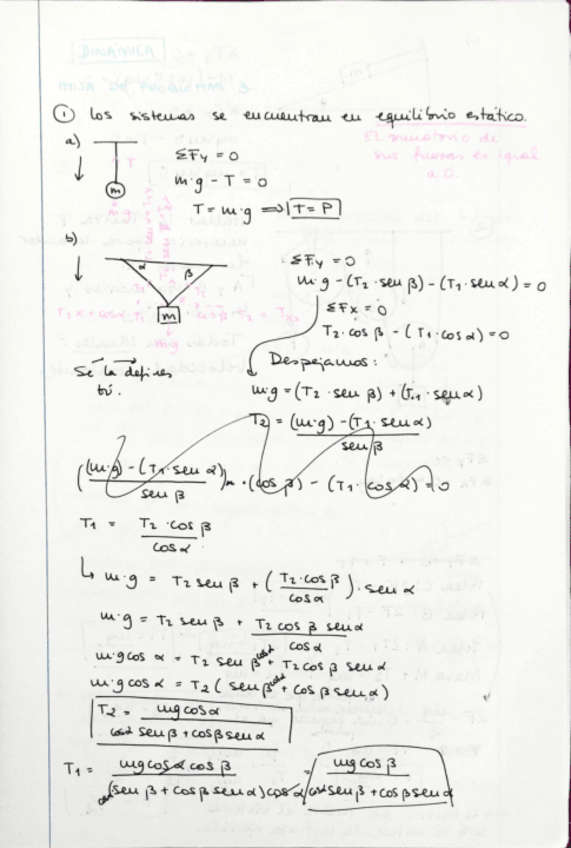 DINÁMICA
HOJA DE PROBLEMAS 3
① Los sistemas se encuentran en equilibrio estático.
El sumatorio de
sus fuerzas es igual
a 0.
a)
T
m
ΣFy = 0
m·g - T = 0
T = m·g ⟹ T = P
b)
α β
m
mg
ΣFy = 0
m·g - (T2 · sen β) - (T1 · sen α) = 0
ΣFx = 0
T2 · cos β - (T1 · cos α) = 0
Despejamos:
Se la defines
tú.
m·g = (T2 · sen β) + (T1 · sen α)
T2 = (m·g) - (T1 · sen α) / sen β
((m·g) - (T1 · sen α) / sen β) · (cos β) - (T1 · cos α) = 0
T1 = T2 · cos β / cos α
↳ m·g = T2 sen β + (T2 · cos β / cos α) · sen α
m·g = T2 sen β + T2 cos β sen α / cos α
m·g cos α = T2 sen β cos α + T2 cos β sen α
m·g cos α = T2 (sen β cos α + cos β sen α)
T2 = mg cos α / cos α sen β + cos β sen α
T1 = mg cos α cos β / (cos α sen β + cos β sen α) cos α = mg cos β / cos α sen β + cos β sen α